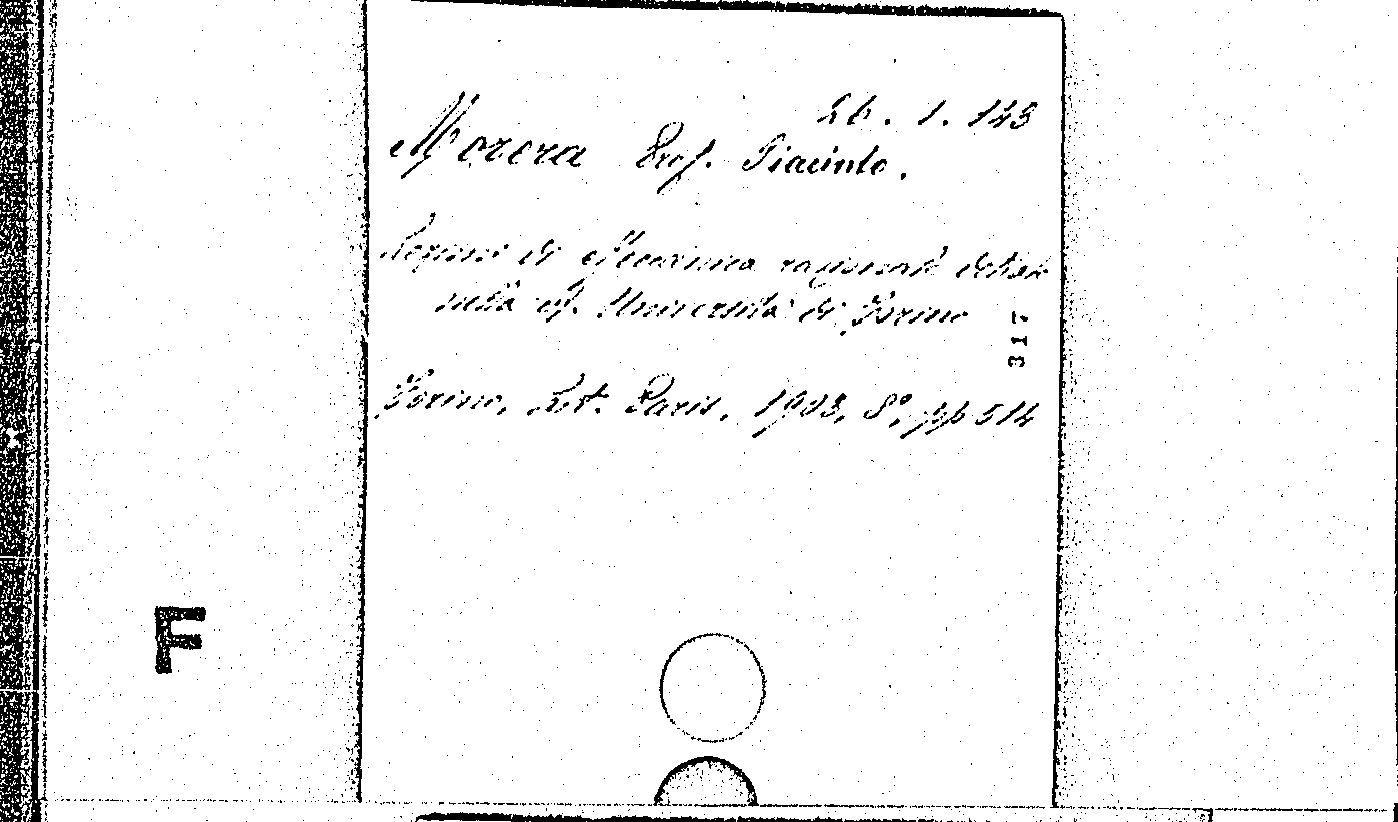 26. 1. 143
Morera Prof. Giacinto.
Lezioni di Meccanica razionale dettate
nella R. Università di Torino
317
Torino, Lit. Paris, 1903, 8°, pp 514
F